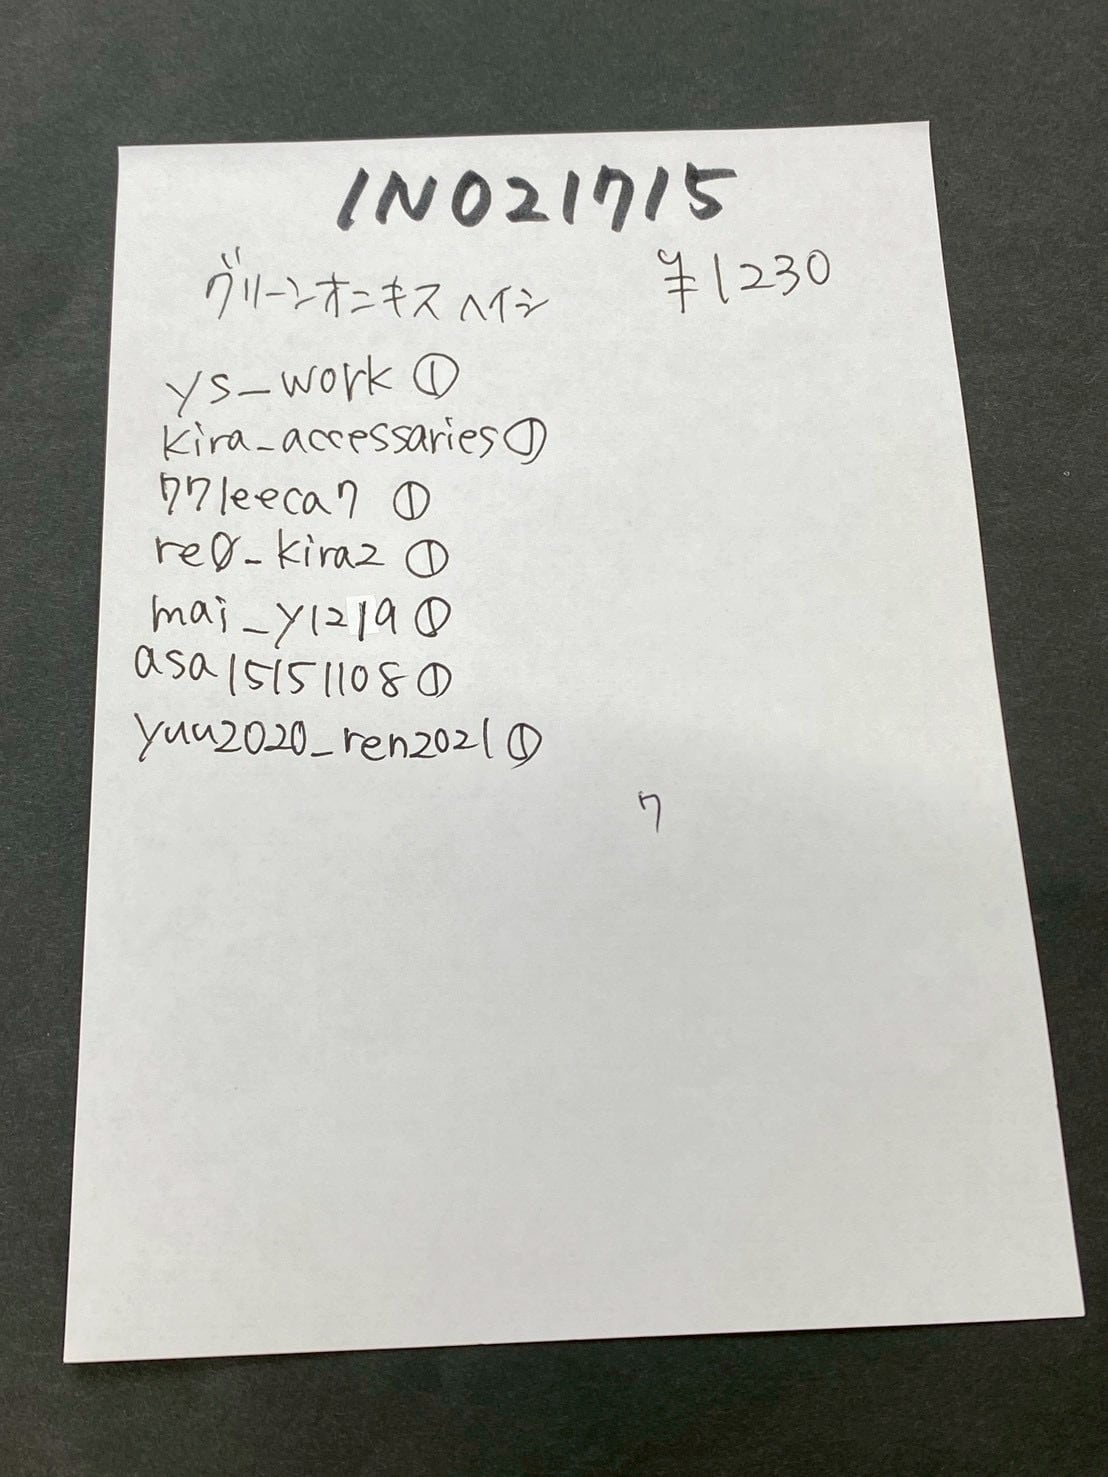 1N021715
グリーンオニキス ヘイシ ¥1230
ys_work ①
kira_accessaries ①
77leeca7 ①
re0_kira2 ①
mai_y1219 ①
asa15151108 ①
yuu2020_ren2021 ①
7